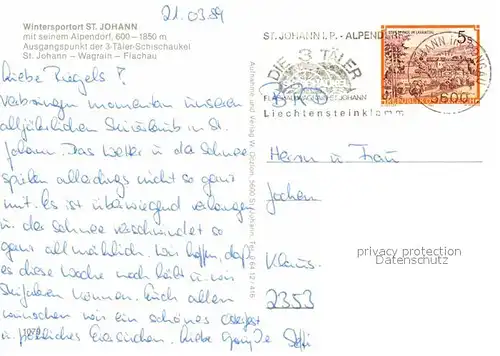 21.03.89
Wintersportort ST. JOHANN
mit seinem Alpendorf, 600–1850 m
Ausgangspunkt der 3-Täler-Schischaukel
St. Johann – Wagrain – Flachau
Liebe
Verbringen momentan unseren
alljährlichen Skiurlaub in St.
Johann. Das Wetter u. der Schnee
spielen allerdings nicht so ganz
mit. Es ist überwiegend
u. der Schnee verschwindet so
ganz allmählich. Wir hoffen, daß
es diese Woche noch hält u. wir
Skifahren können. Euch allen
wünschen wir ein schönes Osterfest
u. fröhliches Eiersuchen. Liebe
ST. JOHANN I. P. - ALPENDORF
DIE 3 TÄLER
Liechtensteinklamm
BRD
5S
5600
Herrn u. Frau
Jochem
Klaus.
2353
privacy protection
Datenschutz